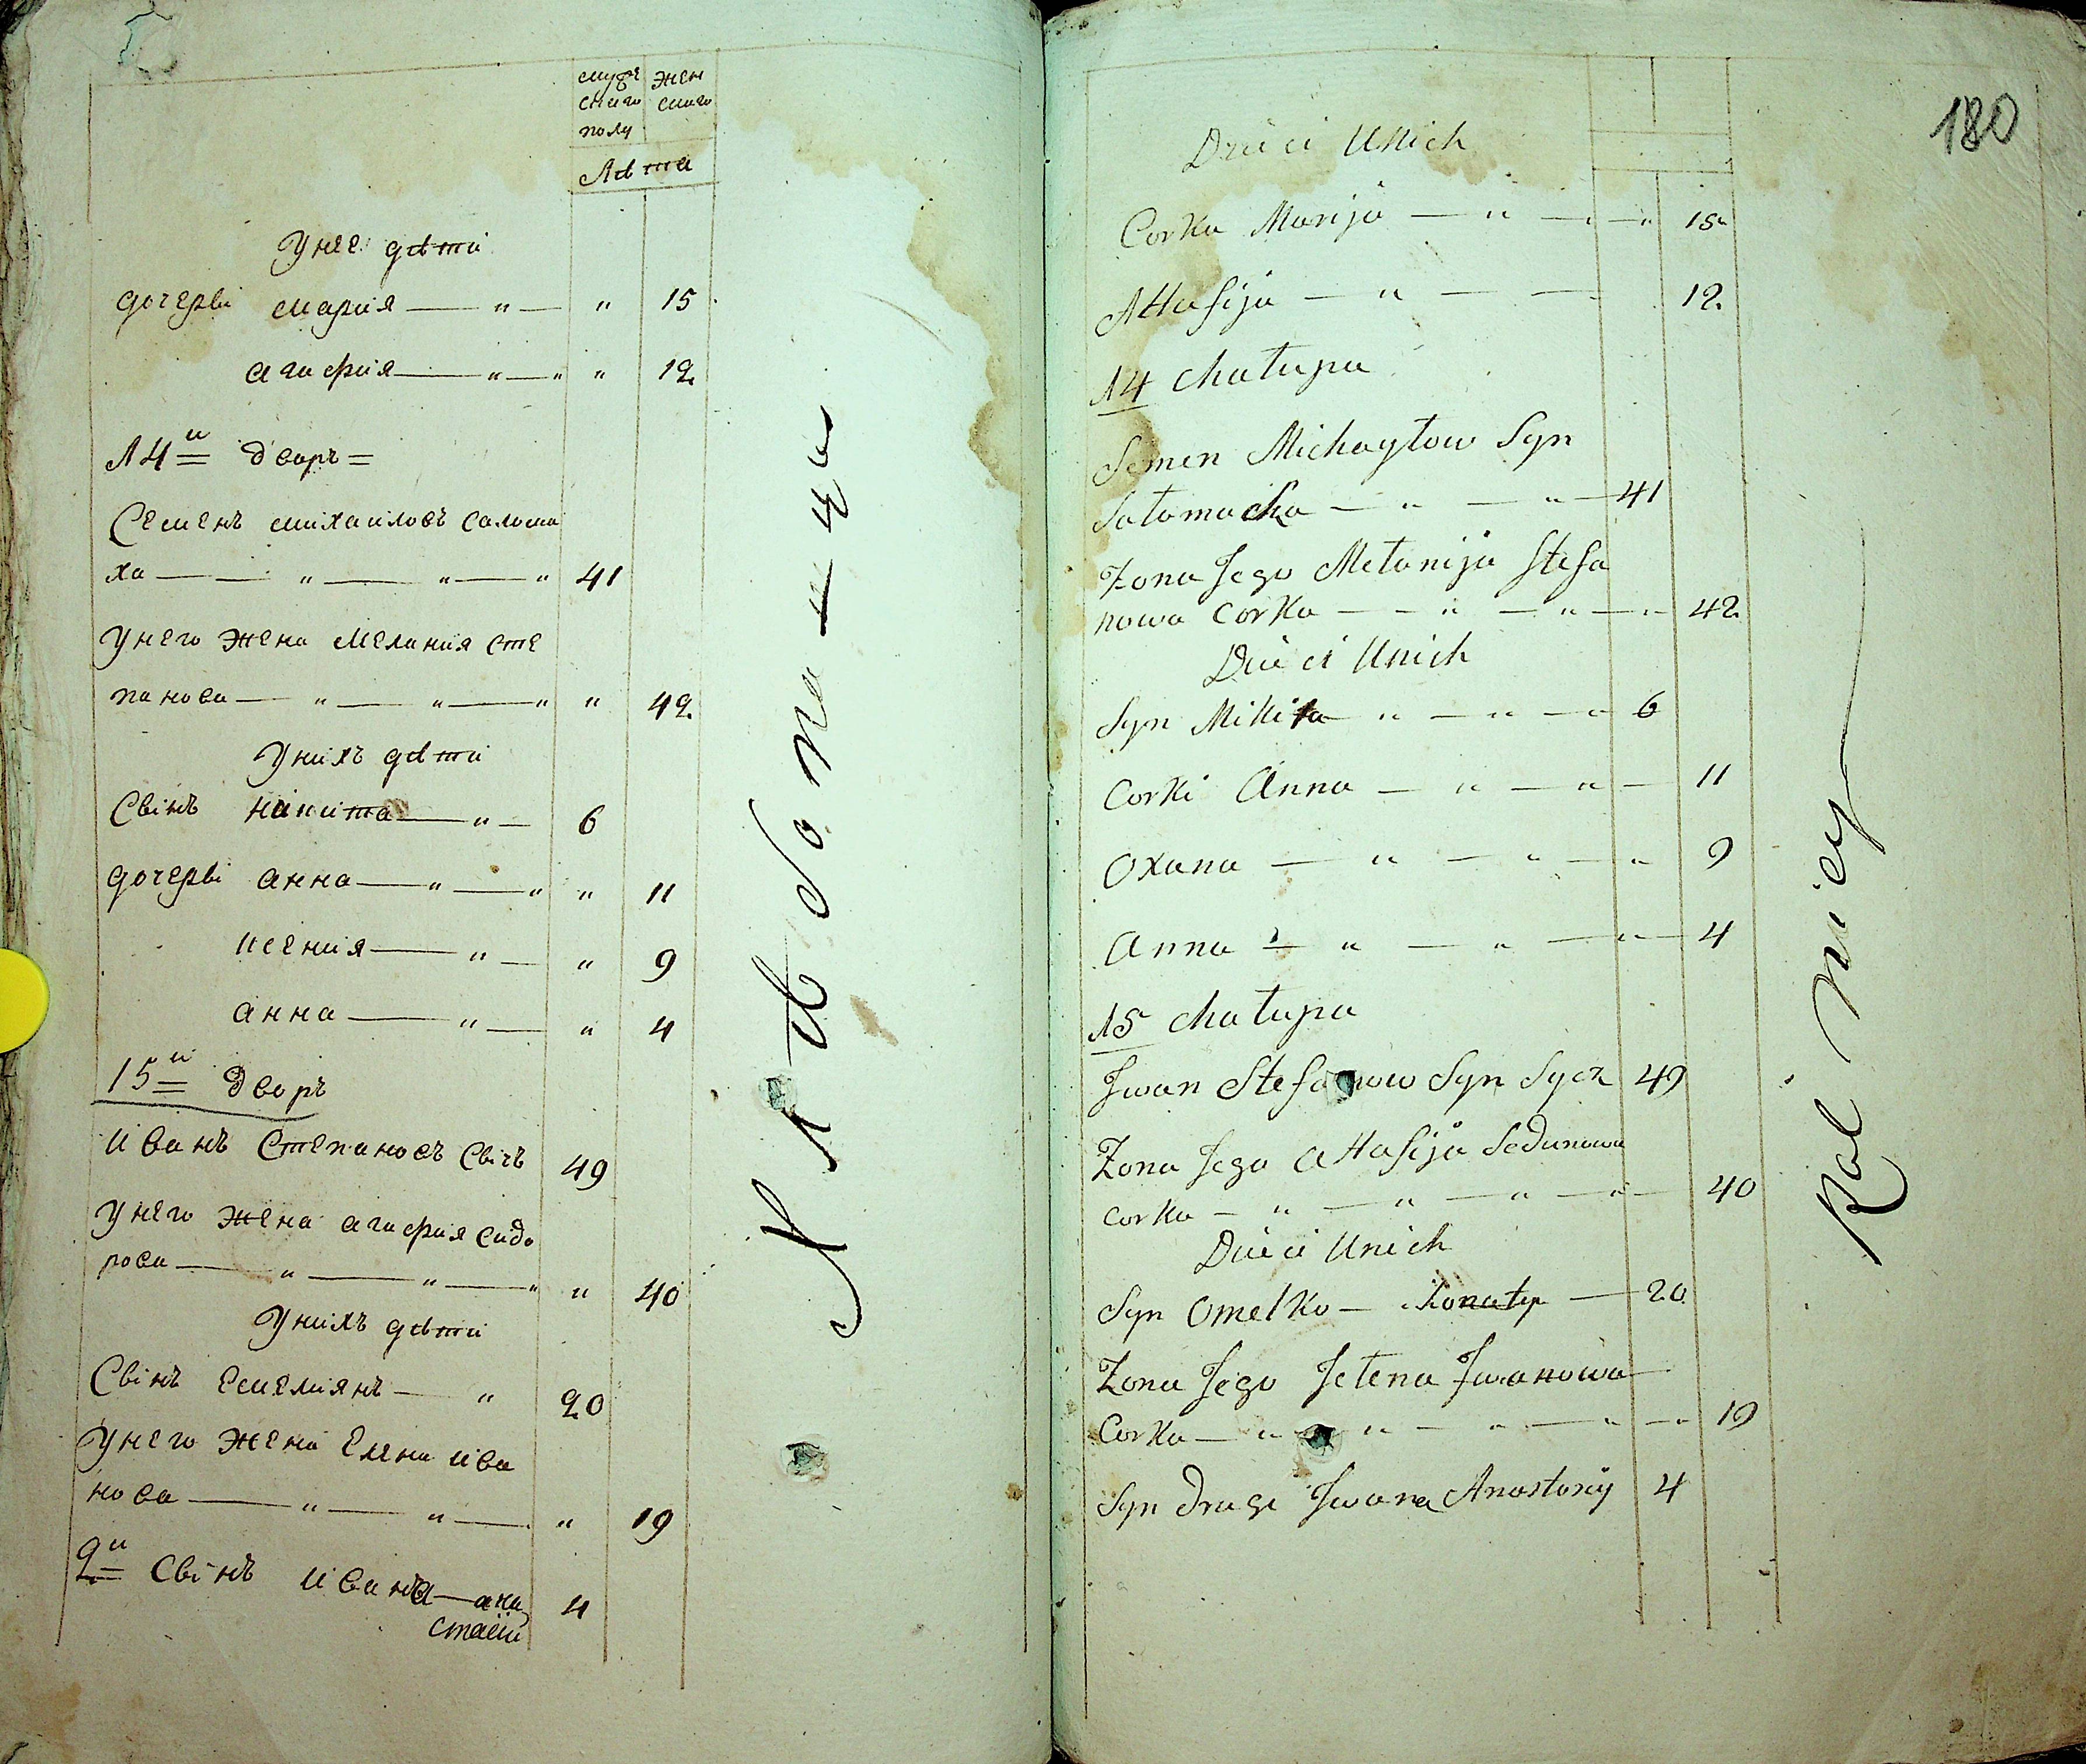 мужe жен
скаго скаго
полу
Лѣта
У нее дѣти
дочеры мария — " — " 15
агафия — " — " " 12
14й дворъ =
Семенъ михаиловъ салома
ха — " — " — " 41
У него жена Мелания сте
панова — " — " — " " 42
У нихъ дѣти
Сынъ никита — " — 6
дочеры анна — " — " " 11
ксения — " — " 9
анна — " — " 4
15й дворъ
Иванъ Степановъ Сычъ 49
У него жена агафия сидо
рова — " — " — " " 40
У нихъ дѣти
Сынъ Емелиянъ — " 20
У него жена Елена ива
нова — " — " — " 19
2й Сынъ Ивана — ана
стасiи 4
180
Dzieci Unich
Corka Marija — " — " 15
Attafija — " — — 12
14 Chałupa
Semen Michayłow Syn
Sałomacha — " — " — 41
Zona Jego Mełanija Stefa
nowa Corka — — " — " — " 42
Dzieci Unich
Syn Mikita — " — " — " 6
Corki Anna — " — " — 11
Oxana — " — " — " 9
Anna 2 — " — " — " — 4
15 Chałupa
Jwan Stefanow Syn Sycz 49
Zona Jego Attafija Sedunowa
corka — " — " — " — " — 40
Dzieci Unich
Syn Omelko — Zonaty — 20
Zona Jego Jełena Jwanowa
Corka — " — " — " — " — " 19
Syn drugi Jwana Anastasÿ 4